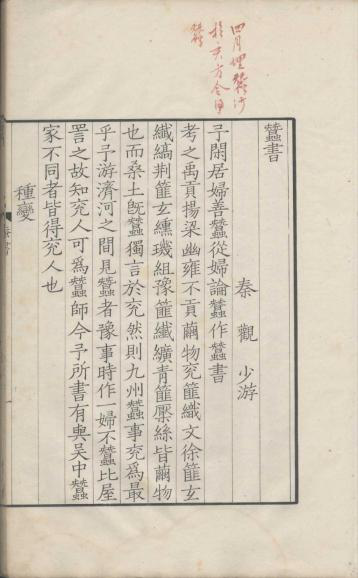 四月
蠶書
秦觀少游
予閑居婦善蠶從婦論蠶作蠶書
考之禹貢揚梁幽雍不貢繭物兖篚織文徐篚玄
纖縞荆篚玄纁璣組豫篚纖纊青篚檿絲皆繭物
也而桑土旣蠶獨言於兖然則九州蠶事兖爲最
乎予游濟河之間見蠶者豫事時作一婦不蠶比屋
詈之故知兖人可爲蠶師今予所書有與吳中蠶
家不同者皆得兖人也
種變